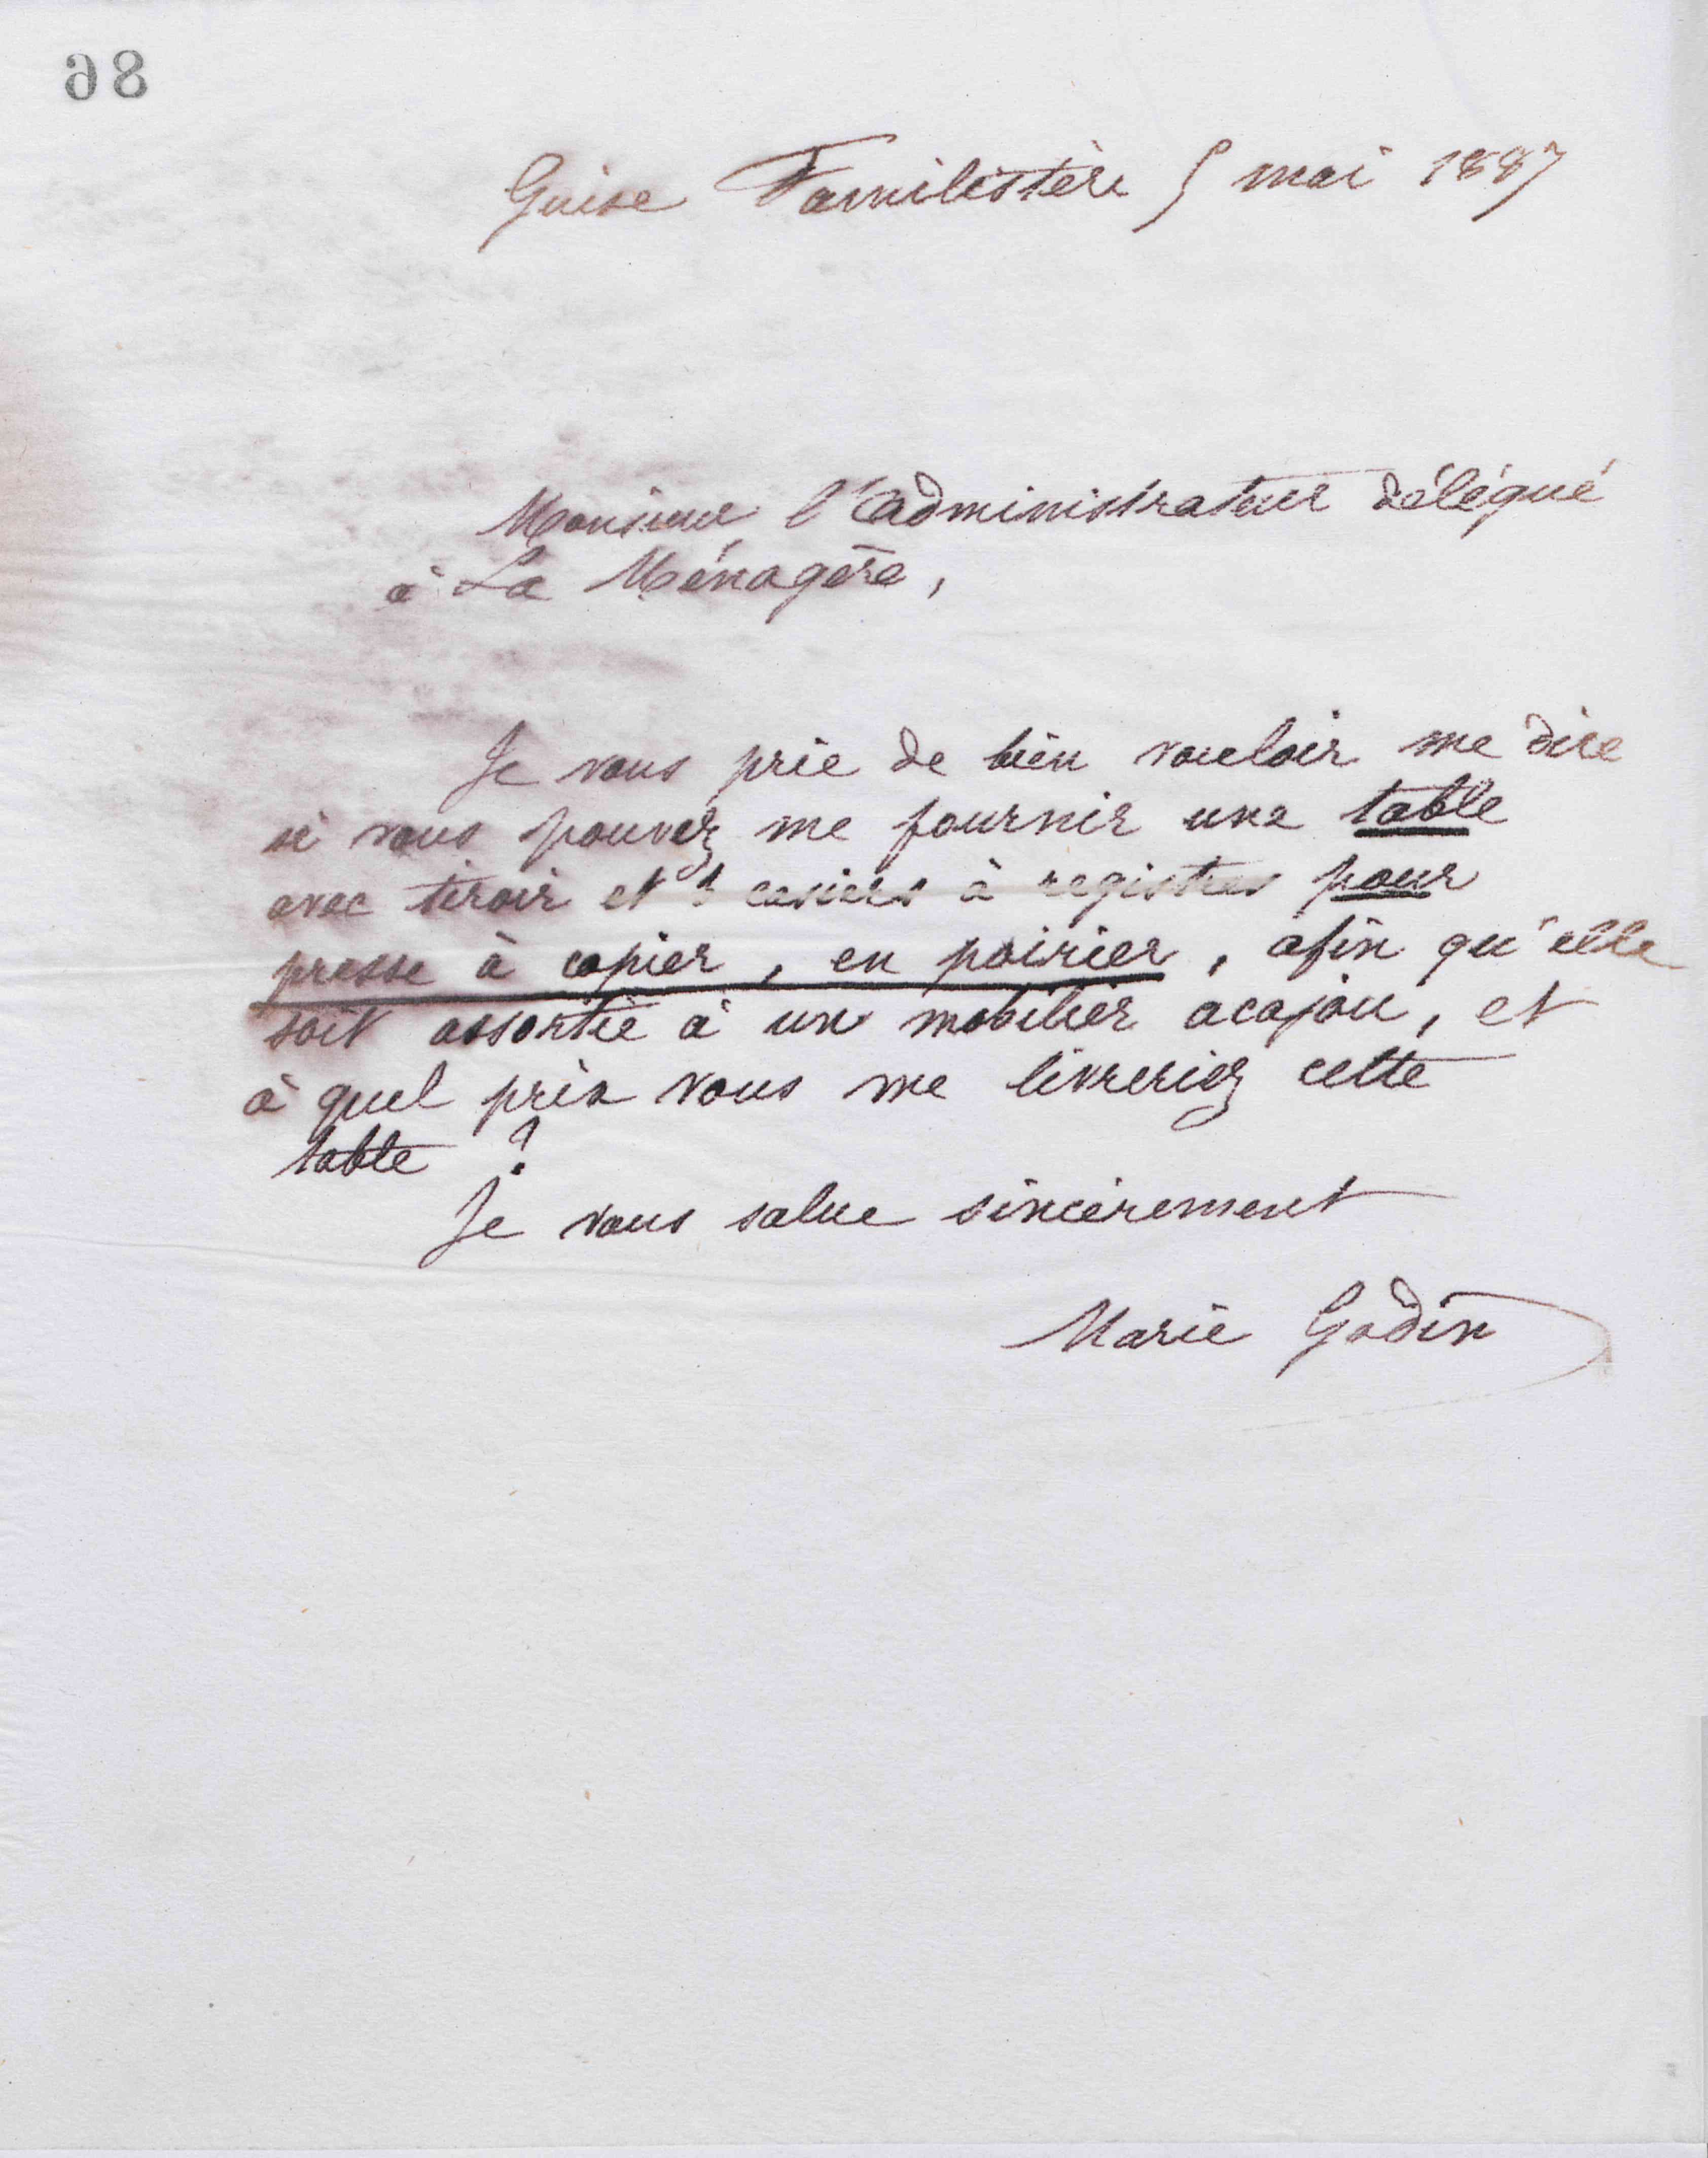 86
Guise Familistère 5 mai 1887
Monsieur l'administrateur délégué
à La Ménagère,
Je vous prie de bien vouloir me dire
si vous pouvez me fournir une table
avec tiroir et casiers à registres pour
presse à copier, en poirier, afin qu'elle
soit assortie à un mobilier acajou, et
à quel prix vous me livreriez cette
table ?
Je vous salue sincèrement
Marie Godin